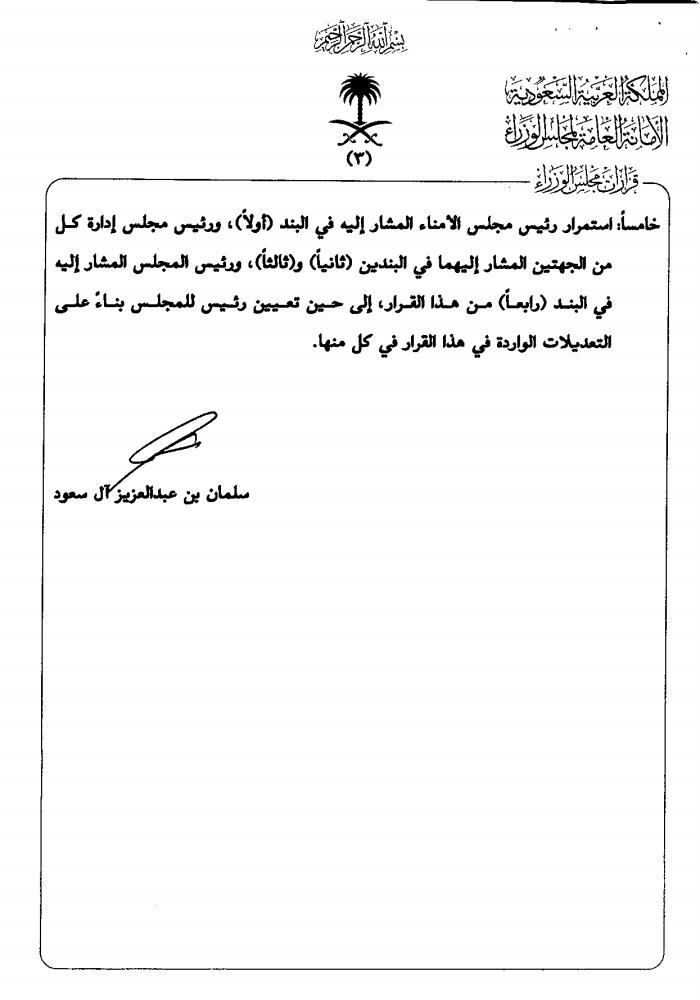 بسم الله الرحمن الرحيم
المملكة العربية السعودية
الأمانة العامة لمجلس الوزراء
(٣)
قرارات مجلس الوزراء
خامساً: استمرار رئيس مجلس الأمناء المشار إليه في البند (أولاً)، ورئيس مجلس إدارة كل
من الجهتين المشار إليهما في البندين (ثانياً) و(ثالثاً)، ورئيس المجلس المشار إليه
في البند (رابعاً) من هذا القرار، إلى حين تعيين رئيس للمجلس بناءً على
التعديلات الواردة في هذا القرار في كل منها.
سلمان بن عبدالعزيز آل سعود